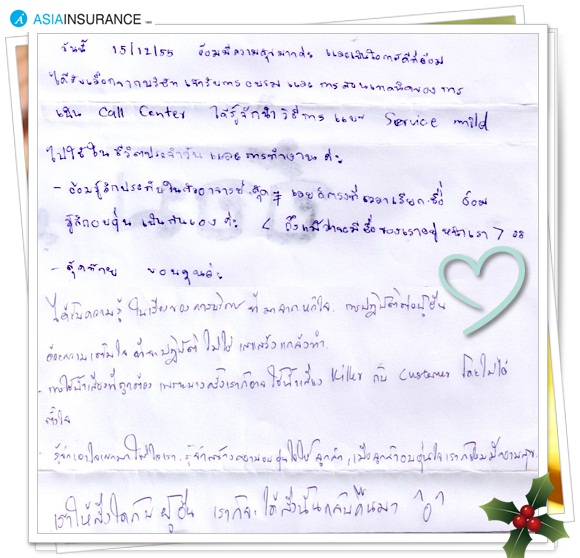 ASIAINSURANCE 1950
วันนี้ 15/12/55 อ้อมมีความสุขมากค่ะ และเป็นโอกาสดีที่อ้อม
ได้รับเลือกจากบริษัท เข้ารับการอบรม และ การสอนเทคนิคของการ
เป็น Call Center ได้รู้จักนำวิธีการ แบบ Service mild
ไปใช้ในชีวิตประจำวัน และการทำงาน ค่ะ
- อ้อมรู้สึกประทับใจในตัวอาจารย์ เลย ตรงที่เวลาเรียกชื่อ อ้อม
รู้สึกอบอุ่น เป็นกันเอง ค่ะ < ถึงแม้ว่าจะมีชื่อของเราอยู่หน้าเรา >
- สุดท้าย ขอบคุณค่ะ
ได้รับความรู้ ในเรื่องของการบริการ ที่มาจากหัวใจ. การปฏิบัติต่อผู้อื่น
ต้องความเต็มใจ ปฏิบัติ ไม่ใช่ เสแสร้งแกล้งทำ.
- การใช้น้ำเสียงที่ถูกต้อง เพราะบางครั้งเราก็อาจ ใช้น้ำเสียง Killer กับ Customer โดยไม่ได้
ตั้งใจ
- รู้จักเอาใจเขามาใส่ใจเรา, รู้จักสร้างความอบอุ่นใจให้ ลูกค้า, เมื่อลูกค้าอบอุ่นใจเราก็ย่อมมีความสุข.
เราให้สิ่งใดกับ ผู้อื่น เราก็จะ ได้สิ่งนั้นกลับคืนมา ^o^